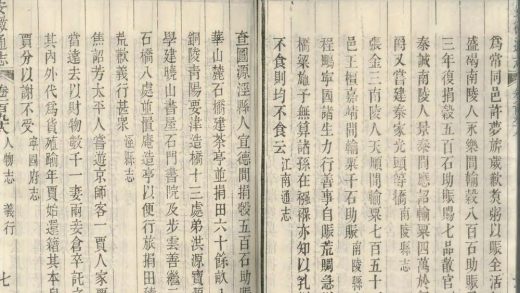 為常同邑許夢旂歲歉煑粥以賑全活
盛昺南陵人永樂間輸穀八百石助賑
三年復捐穀五百石助賑賜七品散官
秦誠南陵人景泰間應詔輸粟四萬於
爵又嘗建秦家光頭等橋南陵縣志
張金三南陵人天順間輸粟七百五十
邑王楫嘉靖間縐粟千石助賑南陵縣志
程鵬寧國諸生力行善事自賑荒賙急
橋梁施予無算諸孫在襁褓亦知以乳
不食則均不食云江南通志
查國源涇縣人宣德間捐穀五百石助賑
華山麓石橋建茶亭並捐田六十餘畝
銅陵青陽要津造橋十三處弟洪源寶
學建曉山書屋石門書院及步雲善繼
石橋八處並置庵造亭以便行旅捐田
荒歉義行甚眾涇縣志
焦詔芳太平人嘗遊京師客一賈人家
當遠去以財物數千一妻兩妾倉卒託
其內外代為貨殖踰年賈始還籍其本
賈分以謝不受寧國府志
安徽通志
卷
人物志
義行
七